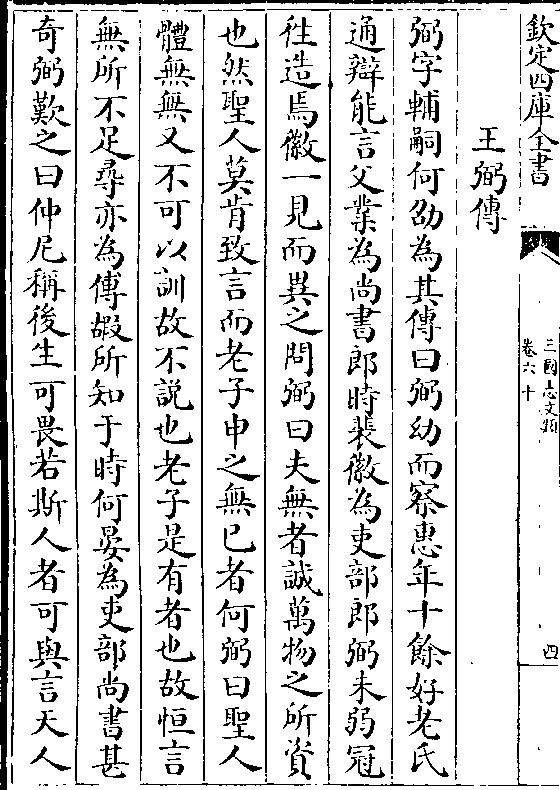 欽定四庫全書
三國志文類
卷六十
四
王弼傳
弼字輔嗣何劭為其傳曰弼幼而察惠年十餘好老氏
通辯能言父業為尚書郎時裴徽為吏部郎弼未弱冠
往造焉徽一見而異之問弼曰夫無者誠萬物之所資
也然聖人莫肯致言而老子申之無已者何弼曰聖人
體無無又不可以訓故不説也老子是有者也故恒言
無所不足尋亦為傅嘏所知于時何晏為吏部尚書甚
奇弼歎之曰仲尼稱後生可畏若斯人者可與言天人